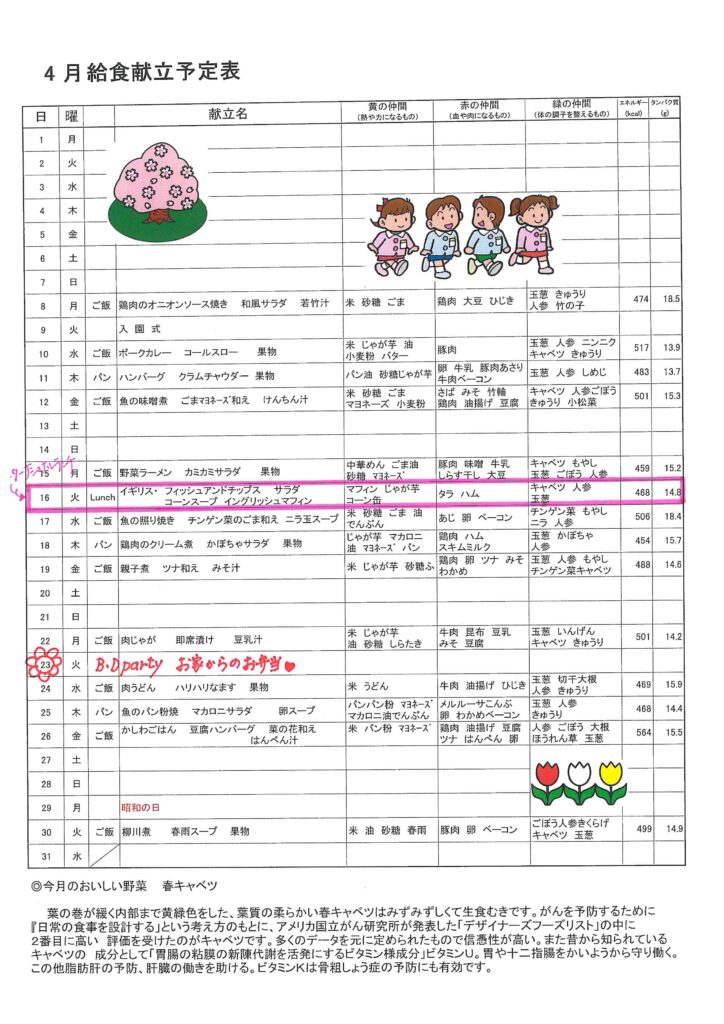 4月給食献立予定表
日 曜 献立名 黄の仲間 (熱や力になるもの) 赤の仲間 (血や肉になるもの) 緑の仲間 (体の調子を整えるもの) エネルギー (kcal) タンパク質 (g)
1 月
2 火
3 水
4 木
5 金
6 土
7 日
8 月 ご飯 鶏肉のオニオンソース焼き 和風サラダ 若竹汁 米 砂糖 ごま 鶏肉 大豆 ひじき 玉葱 きゅうり 人参 竹の子 474 18.5
9 火 入園式
10 水 ご飯 ポークカレー コールスロー 果物 米 じゃが芋 油 小麦粉 バター 豚肉 玉葱 人参 ニンニク キャベツ きゅうり 517 13.9
11 木 パン ハンバーグ クラムチャウダー 果物 パン油 砂糖じゃが芋 卵 牛乳 豚肉あさり 牛肉ベーコン 玉葱 人参 しめじ 483 13.7
12 金 ご飯 魚の味噌煮 ごまマヨネーズ和え けんちん汁 米 砂糖 ごま マヨネーズ 小麦粉 さば みそ 竹輪 鶏肉 油揚げ 豆腐 キャベツ 人参ごぼう きゅうり 小松菜 501 15.3
13 土
14 日
15 月 ご飯 野菜ラーメン カミカミサラダ 果物 中華めん ごま油 砂糖 豚肉 味噌 牛乳 しらす干し 大豆 キャベツ もやし 玉葱 ごぼう 人参 459 15.2
16 火 Lunch イギリス・ フィッシュアンドチップス サラダ コーンスープ イングリッシュマフィン マフィン じゃが芋 コーン缶 タラ ハム キャベツ 人参 玉葱 468 14.8
17 水 ご飯 魚の照り焼き チンゲン菜のごま和え ニラ玉スープ 米 砂糖 ごま 油 でんぷん あじ 卵 ベーコン チンゲン菜 もやし ニラ 人参 506 18.4
18 木 パン 鶏肉のクリーム煮 かぼちゃサラダ 果物 じゃが芋 マカロニ 油 マヨネーズ パン 鶏肉 ハム スキムミルク 玉葱 かぼちゃ 人参 454 15.7
19 金 ご飯 親子煮 ツナ和え みそ汁 米 じゃが芋 砂糖ふ 鶏肉 卵 ツナ みそ わかめ 玉葱 人参 もやし チンゲン菜キャベツ 488 14.6
20 土
21 日
22 月 ご飯 肉じゃが 即席漬け 豆乳汁 米 じゃが芋 油 砂糖 しらたき 牛肉 昆布 豆乳 みそ 豆腐 玉葱 いんげん キャベツ きゅうり 501 14.2
23 火 B.Dparty お家からのお弁当♥
24 水 ご飯 肉うどん ハリハリなます 果物 米 うどん 牛肉 油揚げ ひじき 玉葱 切干大根 人参 きゅうり 469 15.9
25 木 パン 魚のパン粉焼 マカロニサラダ 卵スープ パンパン粉 マヨネーズ マカロニ油でんぷん メルルーサこんぶ 卵 わかめベーコン 玉葱 人参 きゅうり 468 14.4
26 金 ご飯 かしわごはん 豆腐ハンバーグ 菜の花和え はんぺん汁 米 パン粉 マヨネーズ 鶏肉 油揚げ 豆腐 ツナ はんぺん 卵 人参 ごぼう 大根 ほうれん草 玉葱 564 15.5
27 土
28 日
29 月 昭和の日
30 火 ご飯 柳川煮 春雨スープ 果物 米 油 砂糖 春雨 豚肉 卵 ベーコン ごぼう人参きくらげ キャベツ 玉葱 499 14.9
31 水
◎今月のおいしい野菜 春キャベツ
葉の巻が緩く内部まで黄緑色をした、葉質の柔らかい春キャベツはみずみずしくて生食むきです。がんを予防するために
『日常の食事を設計する』という考え方のもとに、アメリカ国立がん研究所が発表した「デザイナーズフーズリスト」の中に
2番目に高い 評価を受けたのがキャベツです。多くのデータを元に定められたもので信憑性が高い。また昔から知られている
キャベツの 成分として「胃腸の粘膜の新陳代謝を活発にするビタミン様成分」ビタミンU。胃や十二指腸をかいようから守り働く。
この他脂肪肝の予防、肝臓の働きを助ける。ビタミンKは骨粗しょう症の予防にも有効です。